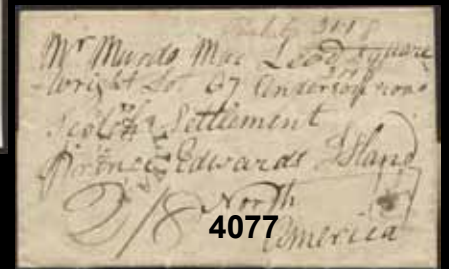 Mr Murdo Mac Leod Square
-wright Lot 67 Anderson road
Scotch Settlement
Prince Edwards Island
North
2/8
4077
America